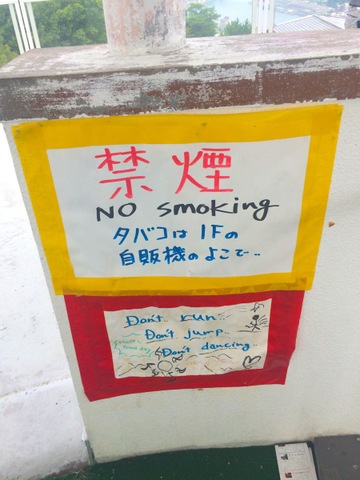 禁煙
NO smoking
タバコは1Fの
自販機のよこで..
Don't run..
Don't jump..
Don't dancing..